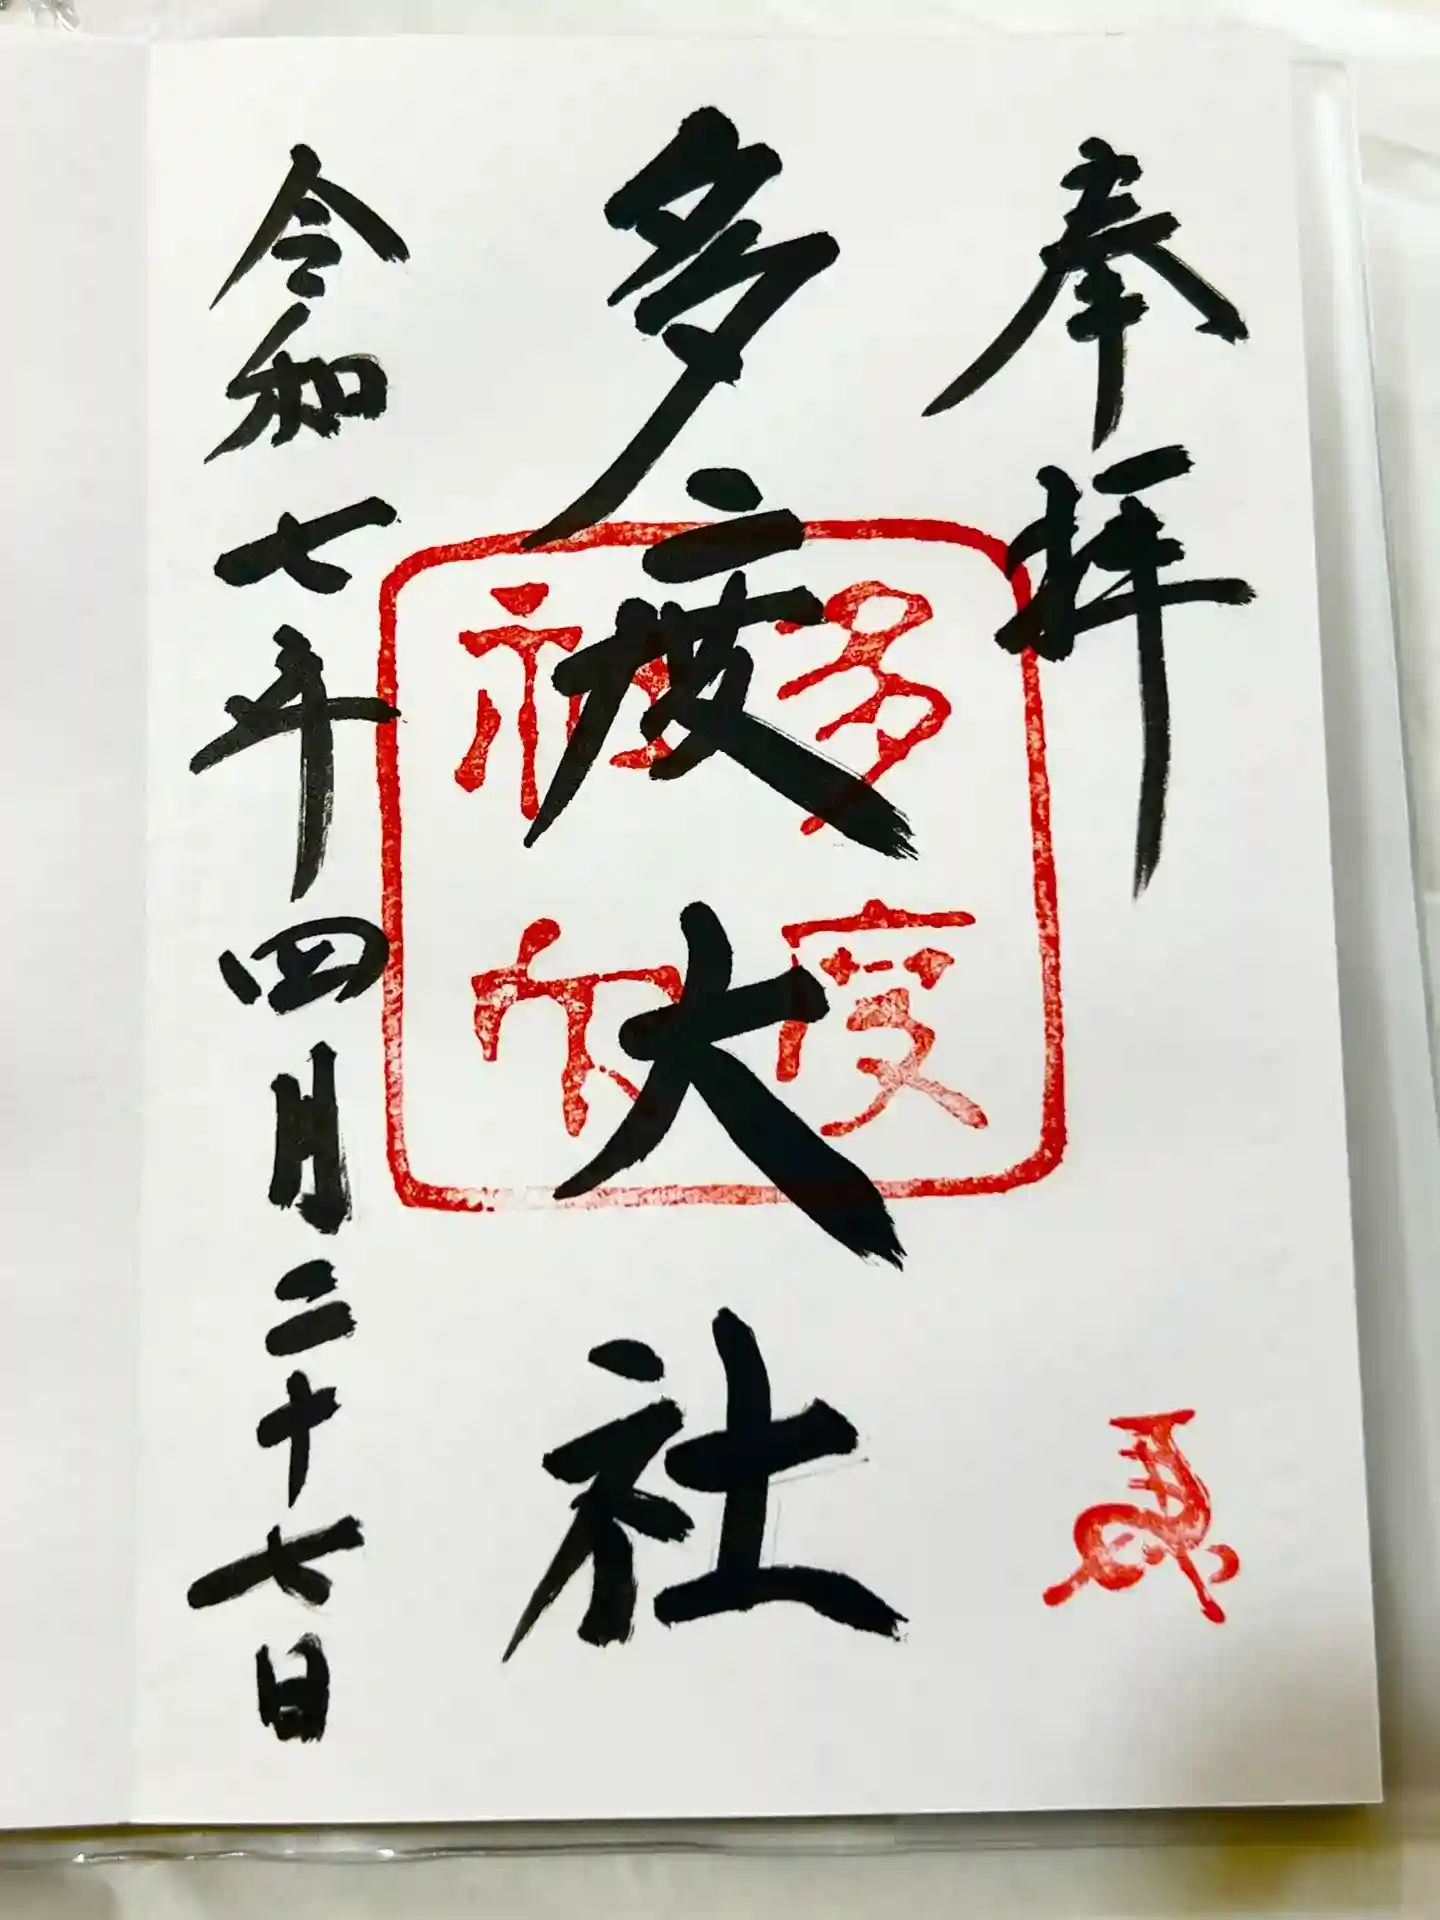 奉拝
多度大社
多度
神社
令和七年四月二十七日